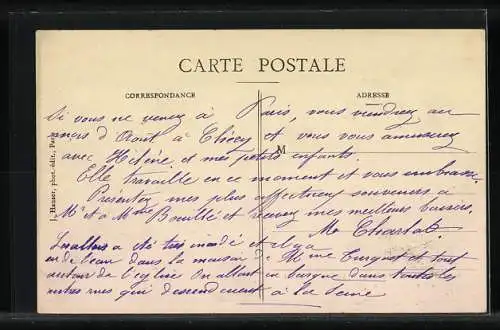 CARTE POSTALE
CORRESPONDANCE
ADRESSE
M
J. Hauser, phot.-édit., Paris
Si vous ne venez à Paris, vous viendrez au
mois d'Aout à Clérey et vous vous amuserez
avec Hélène et mes petits enfants.
Elle travaille en ce moment et vous embrasse.
Présentez mes plus affectueux souvenirs à
Mr et à Mme et recevez mes meilleurs baisers.
Me
a été très inondé et il y a
eu de l'eau dans la maison de Mme Turquet et tout
autour de l'église On allait en barque dans toutes les
autres rues qui descendent à la Seine